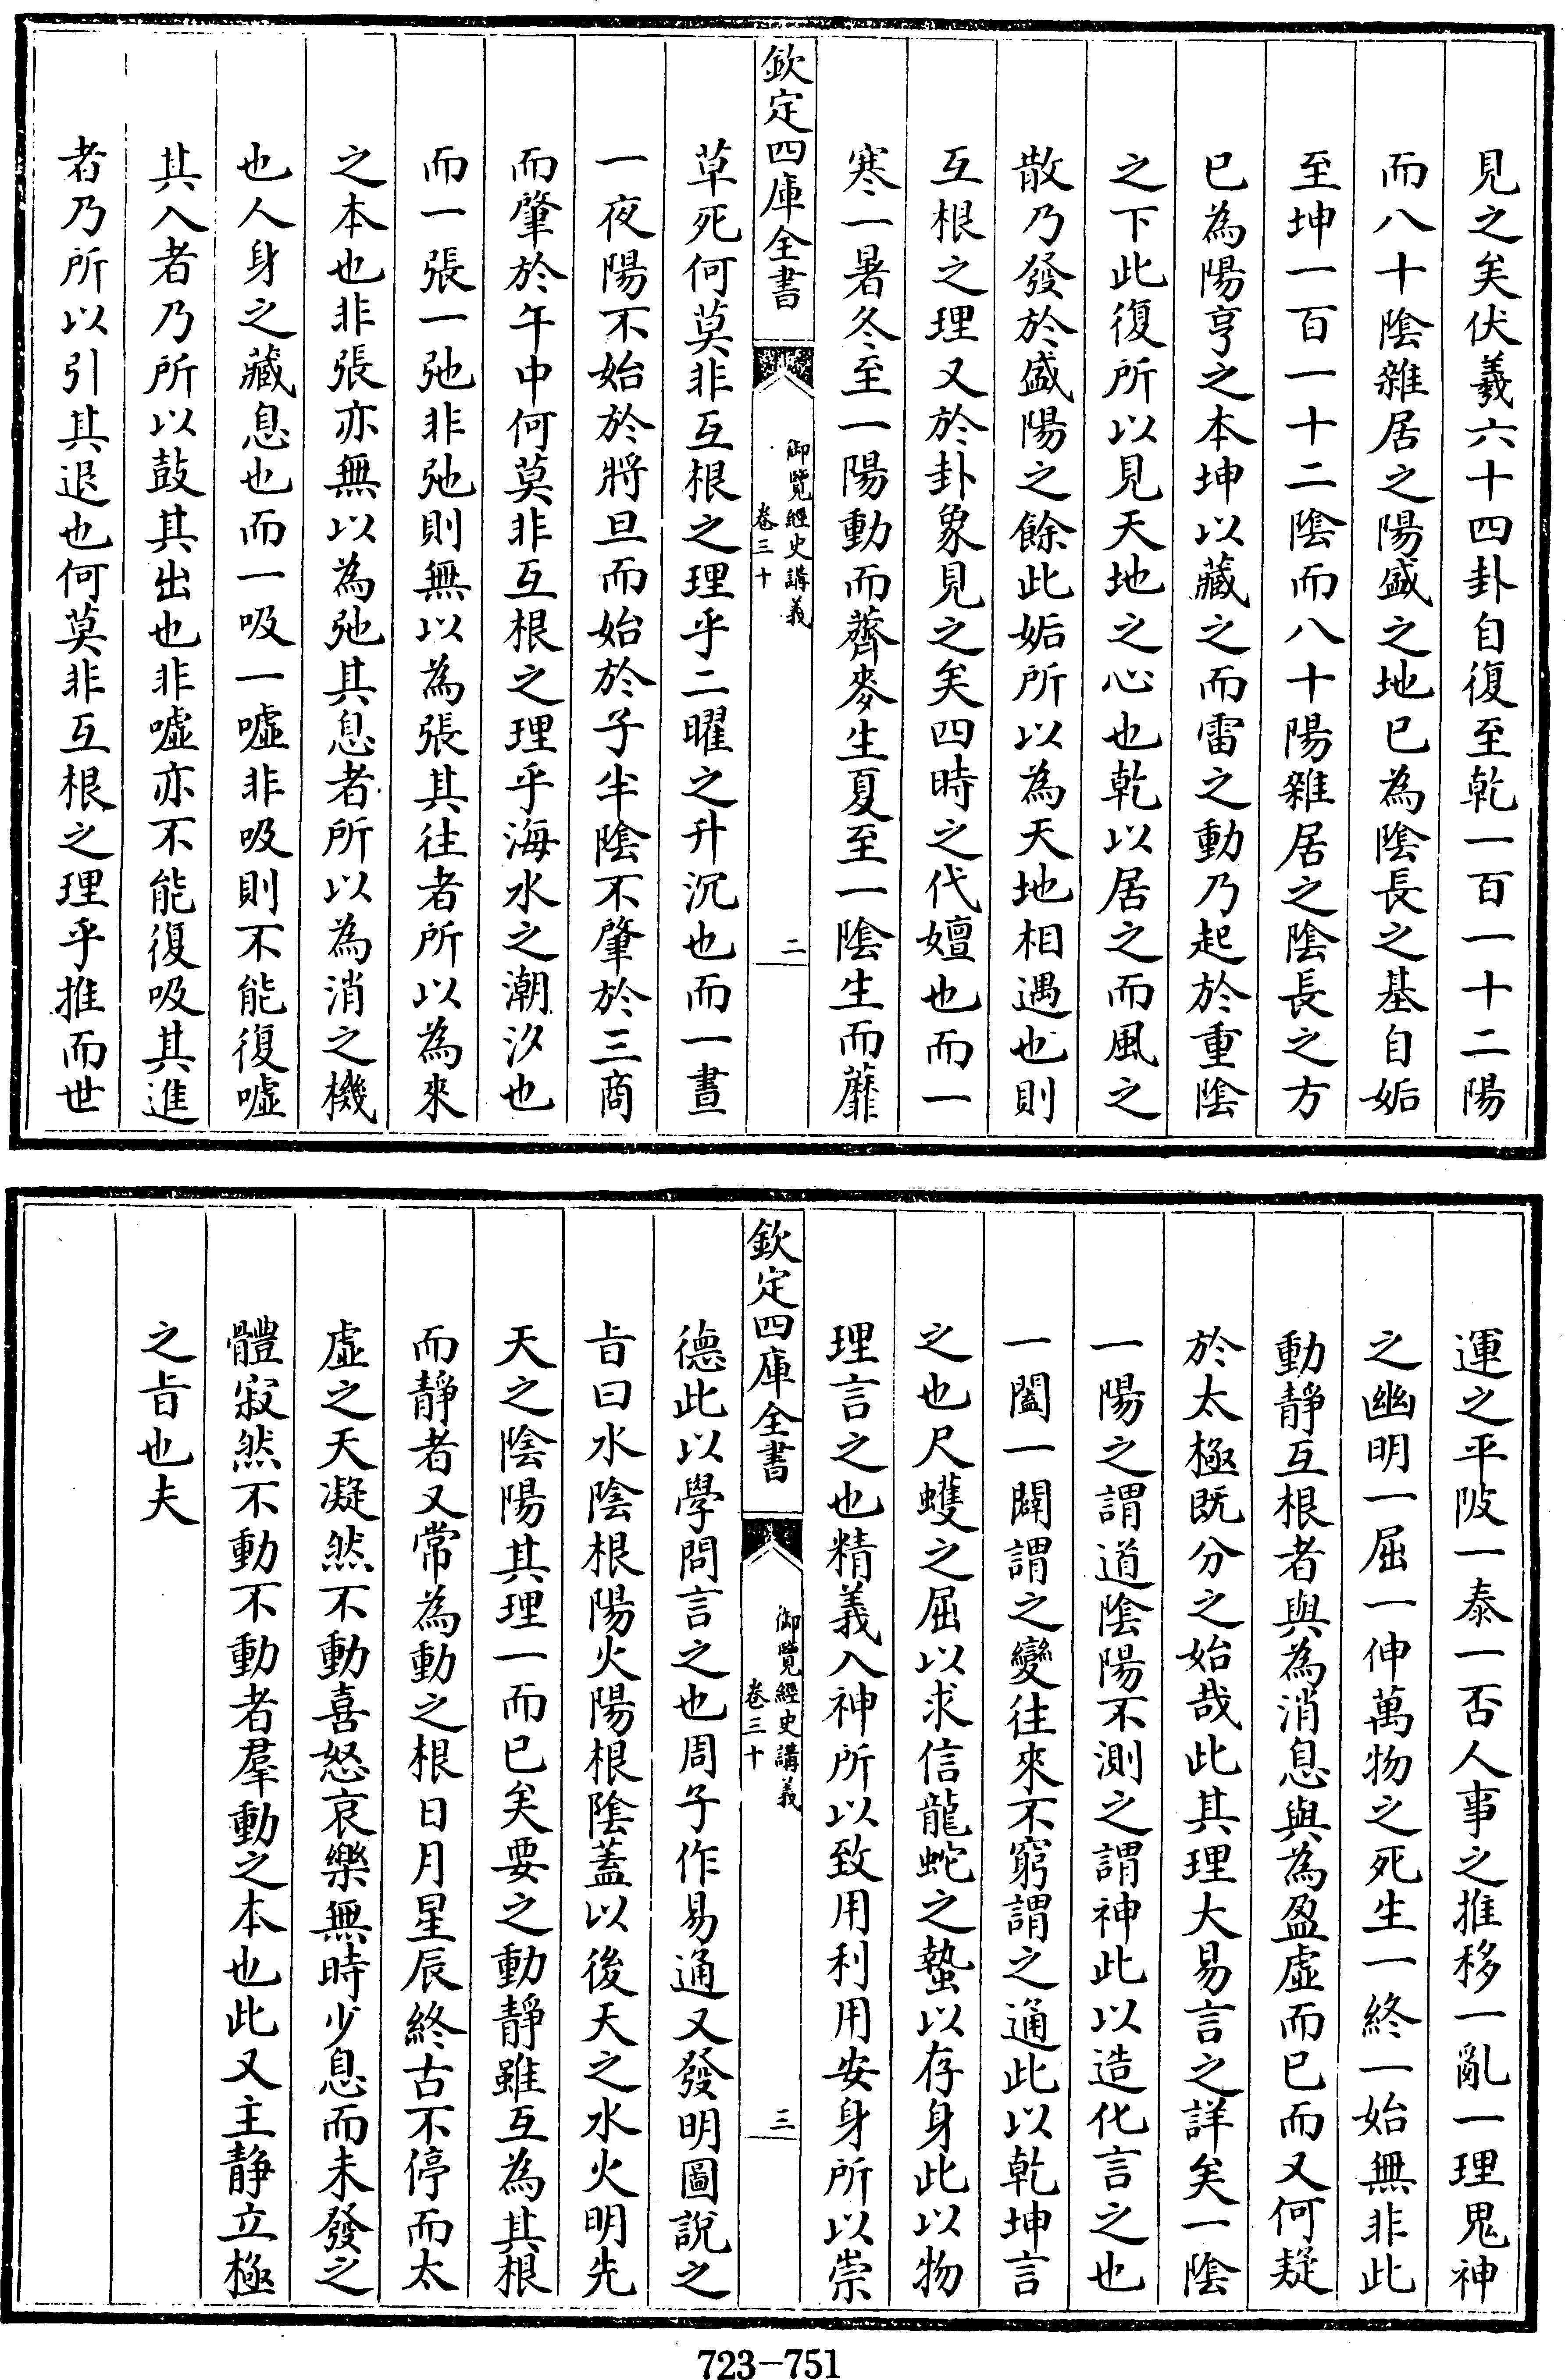 見之矣伏羲六十四卦自復至乾一百一十二陽
而八十陰雜居之陽盛之地已為陰長之基自姤
至坤一百一十二陰而八十陽雜居之陰長之方
已為陽亨之本坤以藏之而雷之動乃起於重陰
之下此復所以見天地之心也乾以居之而風之
散乃發於盛陽之餘此姤所以為天地相遇也則
互根之理又於卦象見之矣四時之代嬗也而一
寒一暑冬至一陽動而薺麥生夏至一陰生而蘼
欽定四庫全書
御覽經史講義
卷三十
二
草死何莫非互根之理乎二曜之升沉也而一晝
一夜陽不始於將旦而始於子半陰不肇於三商
而肇於午中何莫非互根之理乎海水之潮汐也
而一張一弛非弛則無以為張其往者所以為來
之本也非張亦無以為弛其息者所以為消之機
也人身之藏息也而一吸一噓非吸則不能復噓
其入者乃所以鼓其出也非噓亦不能復吸其進
者乃所以引其退也何莫非互根之理乎推而世
運之平陂一泰一否人事之推移一亂一理鬼神
之幽明一屈一伸萬物之死生一終一始無非此
動靜互根者與為消息與為盈虛而已而又何疑
於太極既分之始哉此其理大易言之詳矣一陰
一陽之謂道陰陽不測之謂神此以造化言之也
一闔一闢謂之變往來不窮謂之通此以乾坤言
之也尺蠖之屈以求信龍蛇之蟄以存身此以物
理言之也精義入神所以致用利用安身所以崇
欽定四庫全書
御覽經史講義
卷三十
三
德此以學問言之也周子作易通又發明圖說之
旨曰水陰根陽火陽根陰蓋以後天之水火明先
天之陰陽其理一而已矣要之動靜雖互為其根
而靜者又常為動之根日月星辰終古不停而太
虛之天凝然不動喜怒哀樂無時少息而未發之
體寂然不動不動者羣動之本也此又主靜立極
之旨也夫
723-751